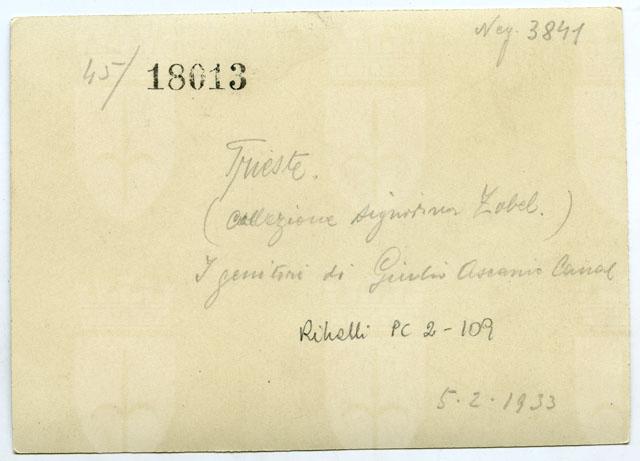 Neg. 3841
45/ 18013
Trieste.
(Collezione signorina Zobel.)
I genitori di Giulio Ascanio Canal
PC 2-109
5.2.1933